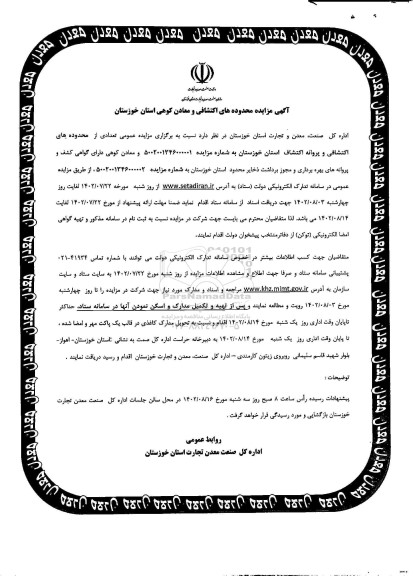 آگهی مزایده محدوده های اکتشافی و معادن کوهی استان خوزستان
اداره کل صنعت، معدن و تجارت استان خوزستان در نظر دارد نسبت به برگزاری مزایده عمومی تعدادی از محدوده های
اکتشافی و پروانه اکتشاف استان خوزستان به شماره مزایده ۵۰۰۲۰۰۱۳۴۶۰۰۰۰۰۱ و معادن کوهی دارای گواهی کشف و
پروانه های بهره برداری و مجوز برداشت ذخایر محدود استان خوزستان به شماره مزایده ۵۰۰۲۰۰۱۳۴۶۰۰۰۰۰۲، از طریق مزایده
عمومی در سامانه تدارک الکترونیکی دولت (ستاد) به آدرس www.setadiran.ir از روز شنبه مورخه ۱۴۰۲/۰۷/۲۲ لغایت روز
چهارشنبه ۱۴۰۲/۰۸/۰۳ جهت دریافت اسناد از سامانه ستاد اقدام نماید ضمنا مهلت ارائه پیشنهاد از مورخ ۱۴۰۲/۰۷/۲۲ لغایت
۱۴۰۲/۰۸/۱۴ می باشد. لذا متقاضیان محترم می بایست جهت شرکت در مزایده نسبت به ثبت نام در سامانه مذکور و تهیه گواهی
امضا الکترونیکی (توکن) از دفاتر منتخب پیشخوان دولت اقدام نمایند.
متقاضیان جهت کسب اطلاعات بیشتر در خصوص سامانه تدارک الکترونیکی دولت می توانند با شماره تماس ۴۱۹۳۴-۰۲۱
پشتیبانی سامانه ستاد و صرفا جهت اطلاع و مشاهده اطلاعات مزایده از روز شنبه مورخ ۱۴۰۲/۰۷/۲۲ به سایت ستاد و سایت
سازمان به آدرس www.khz.mimt.gov.ir مراجعه و اسناد و مدارک مورد نیاز جهت شرکت در مزایده را تا روز چهارشنبه
مورخ ۱۴۰۲/۰۸/۰۳ رویت و مطالعه نمایند و پس از تهیه و تکمیل مدارک و اسکن نمودن آنها در سامانه ستاد، حداکثر
تا پایان وقت اداری روز یک شنبه مورخ ۱۴۰۲/۰۸/۱۴ اقدام و نسبت به تحویل مدارک کاغذی در قالب یک پاکت مهر و امضا شده ،
تا پایان وقت اداری روز یک شنبه مورخ ۱۴۰۲/۰۸/۱۴ به دبیرخانه حراست اداره کل صمت به نشانی :استان خوزستان- اهواز-
بلوار شهید قاسم سلیمانی روبروی زیتون کارمندی – اداره کل صنعت، معدن و تجارت خوزستان اقدام و رسید دریافت نمایند .
توضیحات :
پیشنهادات رسیده رأس ساعت ۸ صبح روز سه شنبه مورخ ۱۴۰۲/۰۸/۱۶ در محل سالن جلسات اداره کل صنعت معدن تجارت
خوزستان بازگشایی و مورد رسیدگی قرار خواهد گرفت .
روابط عمومی
اداره کل صنعت معدن تجارت استان خوزستان